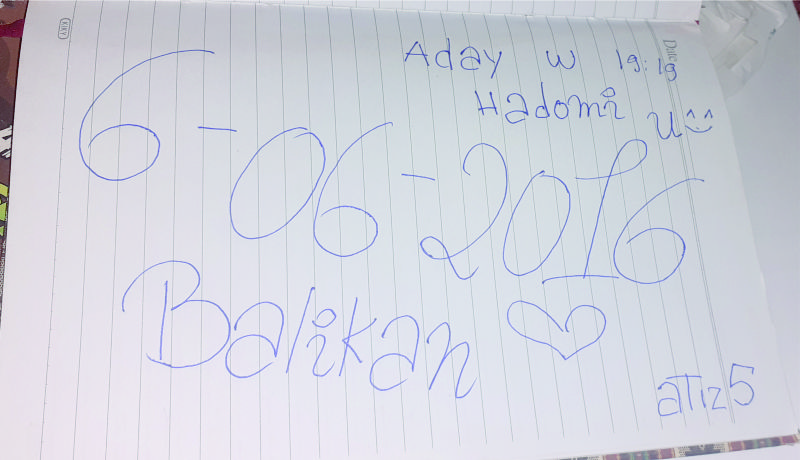 KIKY
Date
Aday W 19:19
Hadomi U ^^
6-06-2016
Balikan ♡
aTiz5